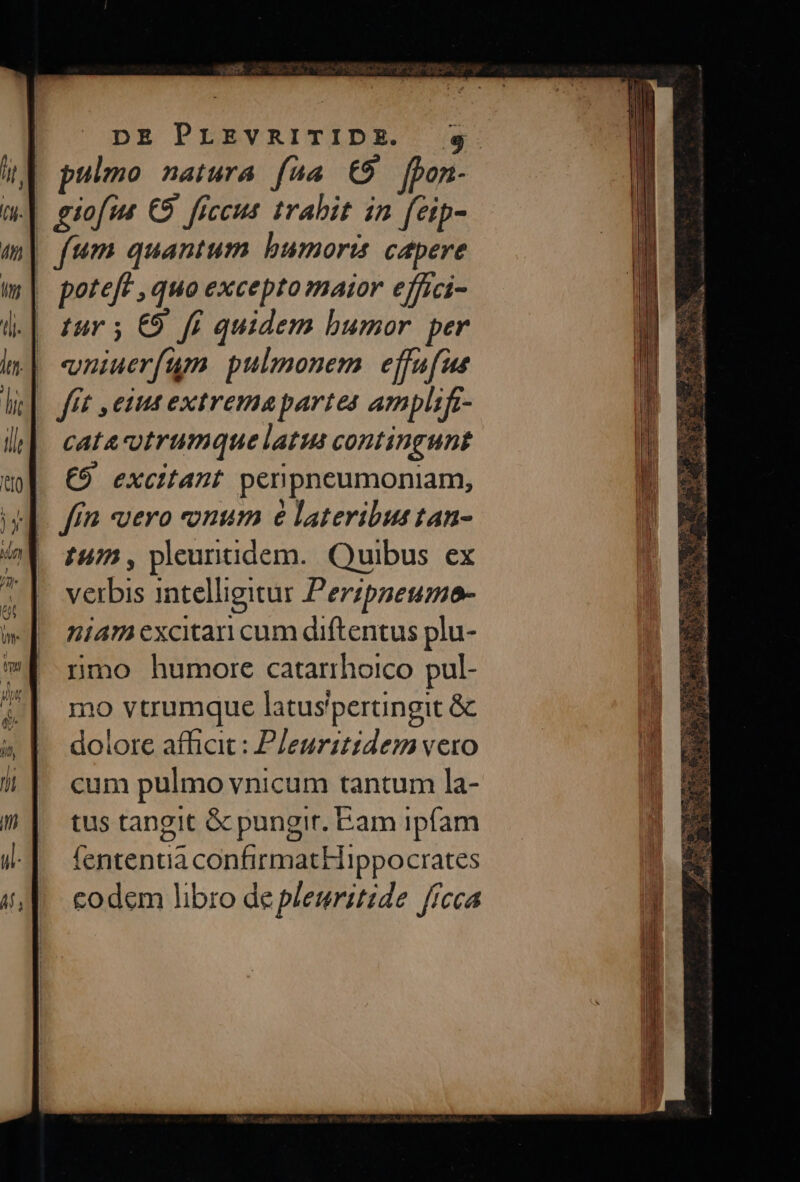 DE PLEVRITIDE. 9
pulmo natura ſua & ſpon-
gioſus & ſiccus trahit in ſeip-
ſum quantum humoris capere
poteſt, quo excepto maior effici-
tur; & ſi quidem humor per
vniuerſum pulmonem effuſus
ſit, eius extrema partes amplifi-
catæ vtrumque latus contingunt
& excitant peripneumoniam,
ſin vero vnum è lateribus tan-
tum, pleuritidem. Quibus ex
verbis intelligitur Peripneumo-
niam excitari cum diſtentus plu-
rimo humore catarrhoico pul-
mo vtrumque latus pertingit &
dolore afficit: Pleuritidem vero
cum pulmo vnicum tantum la-
tus tangit & pungit. Eam ipſam
ſententiã confirmat Hippocrates
eodem libro de pleuritide ſicca